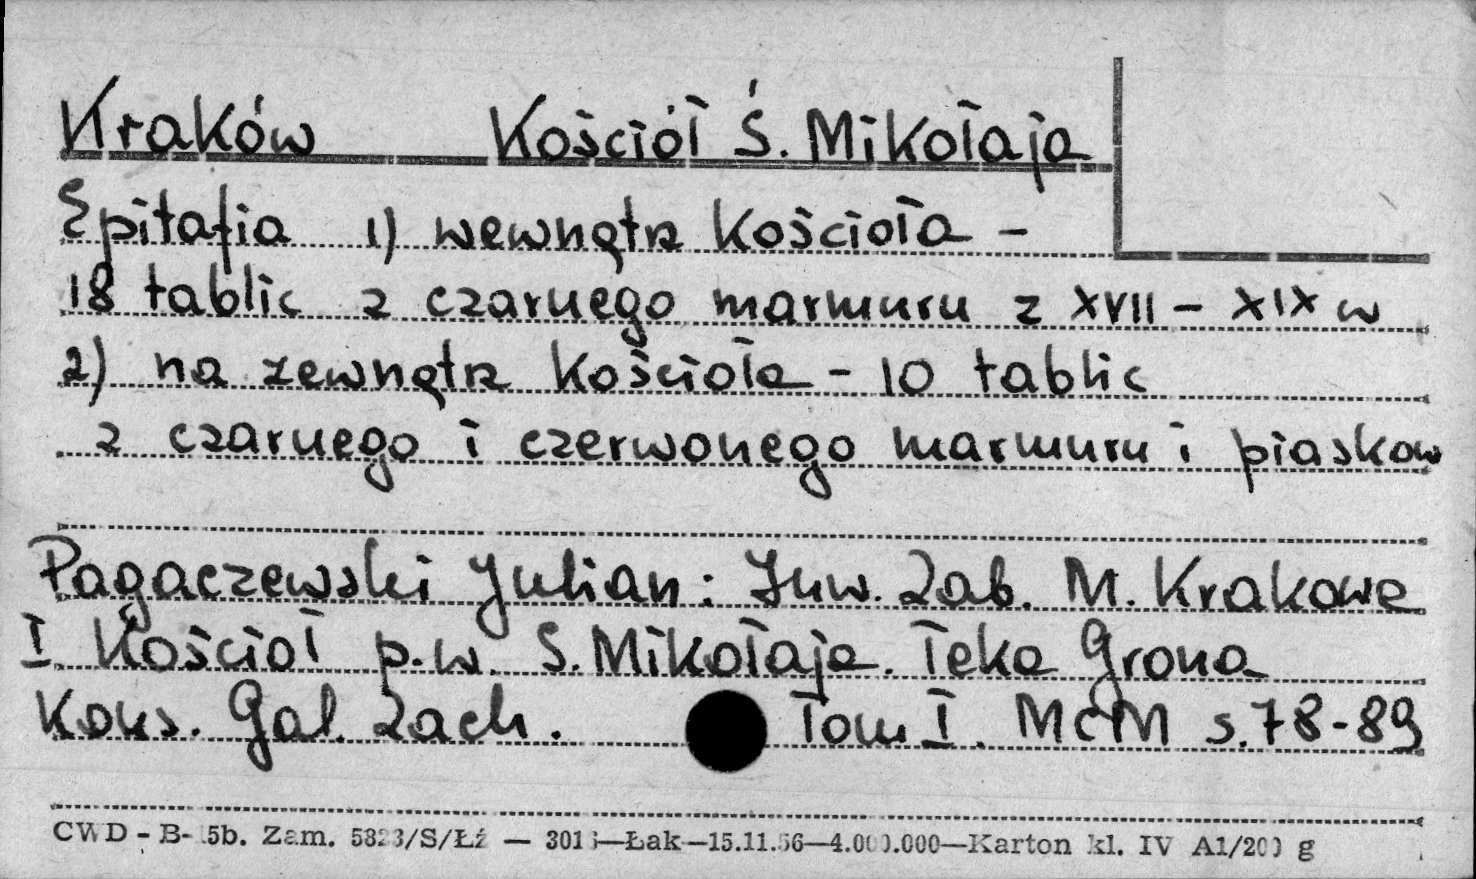 Kraków Kościół Ś. Mikołaja
Epitafia 1) wewnątrz Kościoła –
18 tablic z czarnego marmuru z XVII – XIX w
2) na zewnątrz Kościoła – 10 tablic
z czarnego i czerwonego marmuru i piaskow
Pagaczewski Julian: Inw. Zab. M. Krakowa
I. Kościoł p.w. S. Mikołaja. Teka Grona
Kons. Gal. Zach. Tom I. MCM s. 78-89
CWD - B-15b. Zam. 5823/S/Łź — 3016—Łak—15.11.56—4.000.000—Karton kl. IV A1/200 g